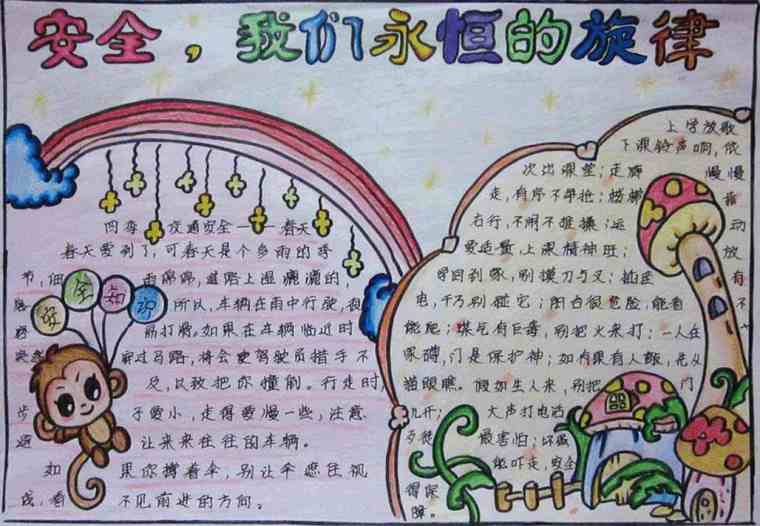 安全，我们永恒的旋律
四季 交通安全——春天
春天爱到了，可春天是个多雨的季
节，细 雨绵绵，道路上湿漉漉的，
安全知识
所以，车辆在雨中行驶，很
易打滑。如果在车辆临近时
突然 穿过马路，将会使驾驶员措手不
及，以致把你撞倒。行走时，
步 子爱小，走得爱慢一些，注意
避 让来来往往的车辆。
如 果你撑着伞，别让伞遮住视
线，看 不见前进的方向。
上学放歌
下课铃声响，依
次出课堂；走廊 慢慢
走，有序不争抢；楼梯 靠
右行，不闹不推搡；运 动
爱适量，上课精神旺； 放
学回到家，别摸刀与叉；插座 有
电，千万别碰它；阳台很危险，能看 不
能爬；煤气有巨毒，别把火来打；一人在
家确，门是保护神；如有果有人敲，先从
猫眼瞧。假如生人来，别把 门
儿开； 大声打电话
歹徒 最害怕；坏蛋
能吓走，安全
得保
障。